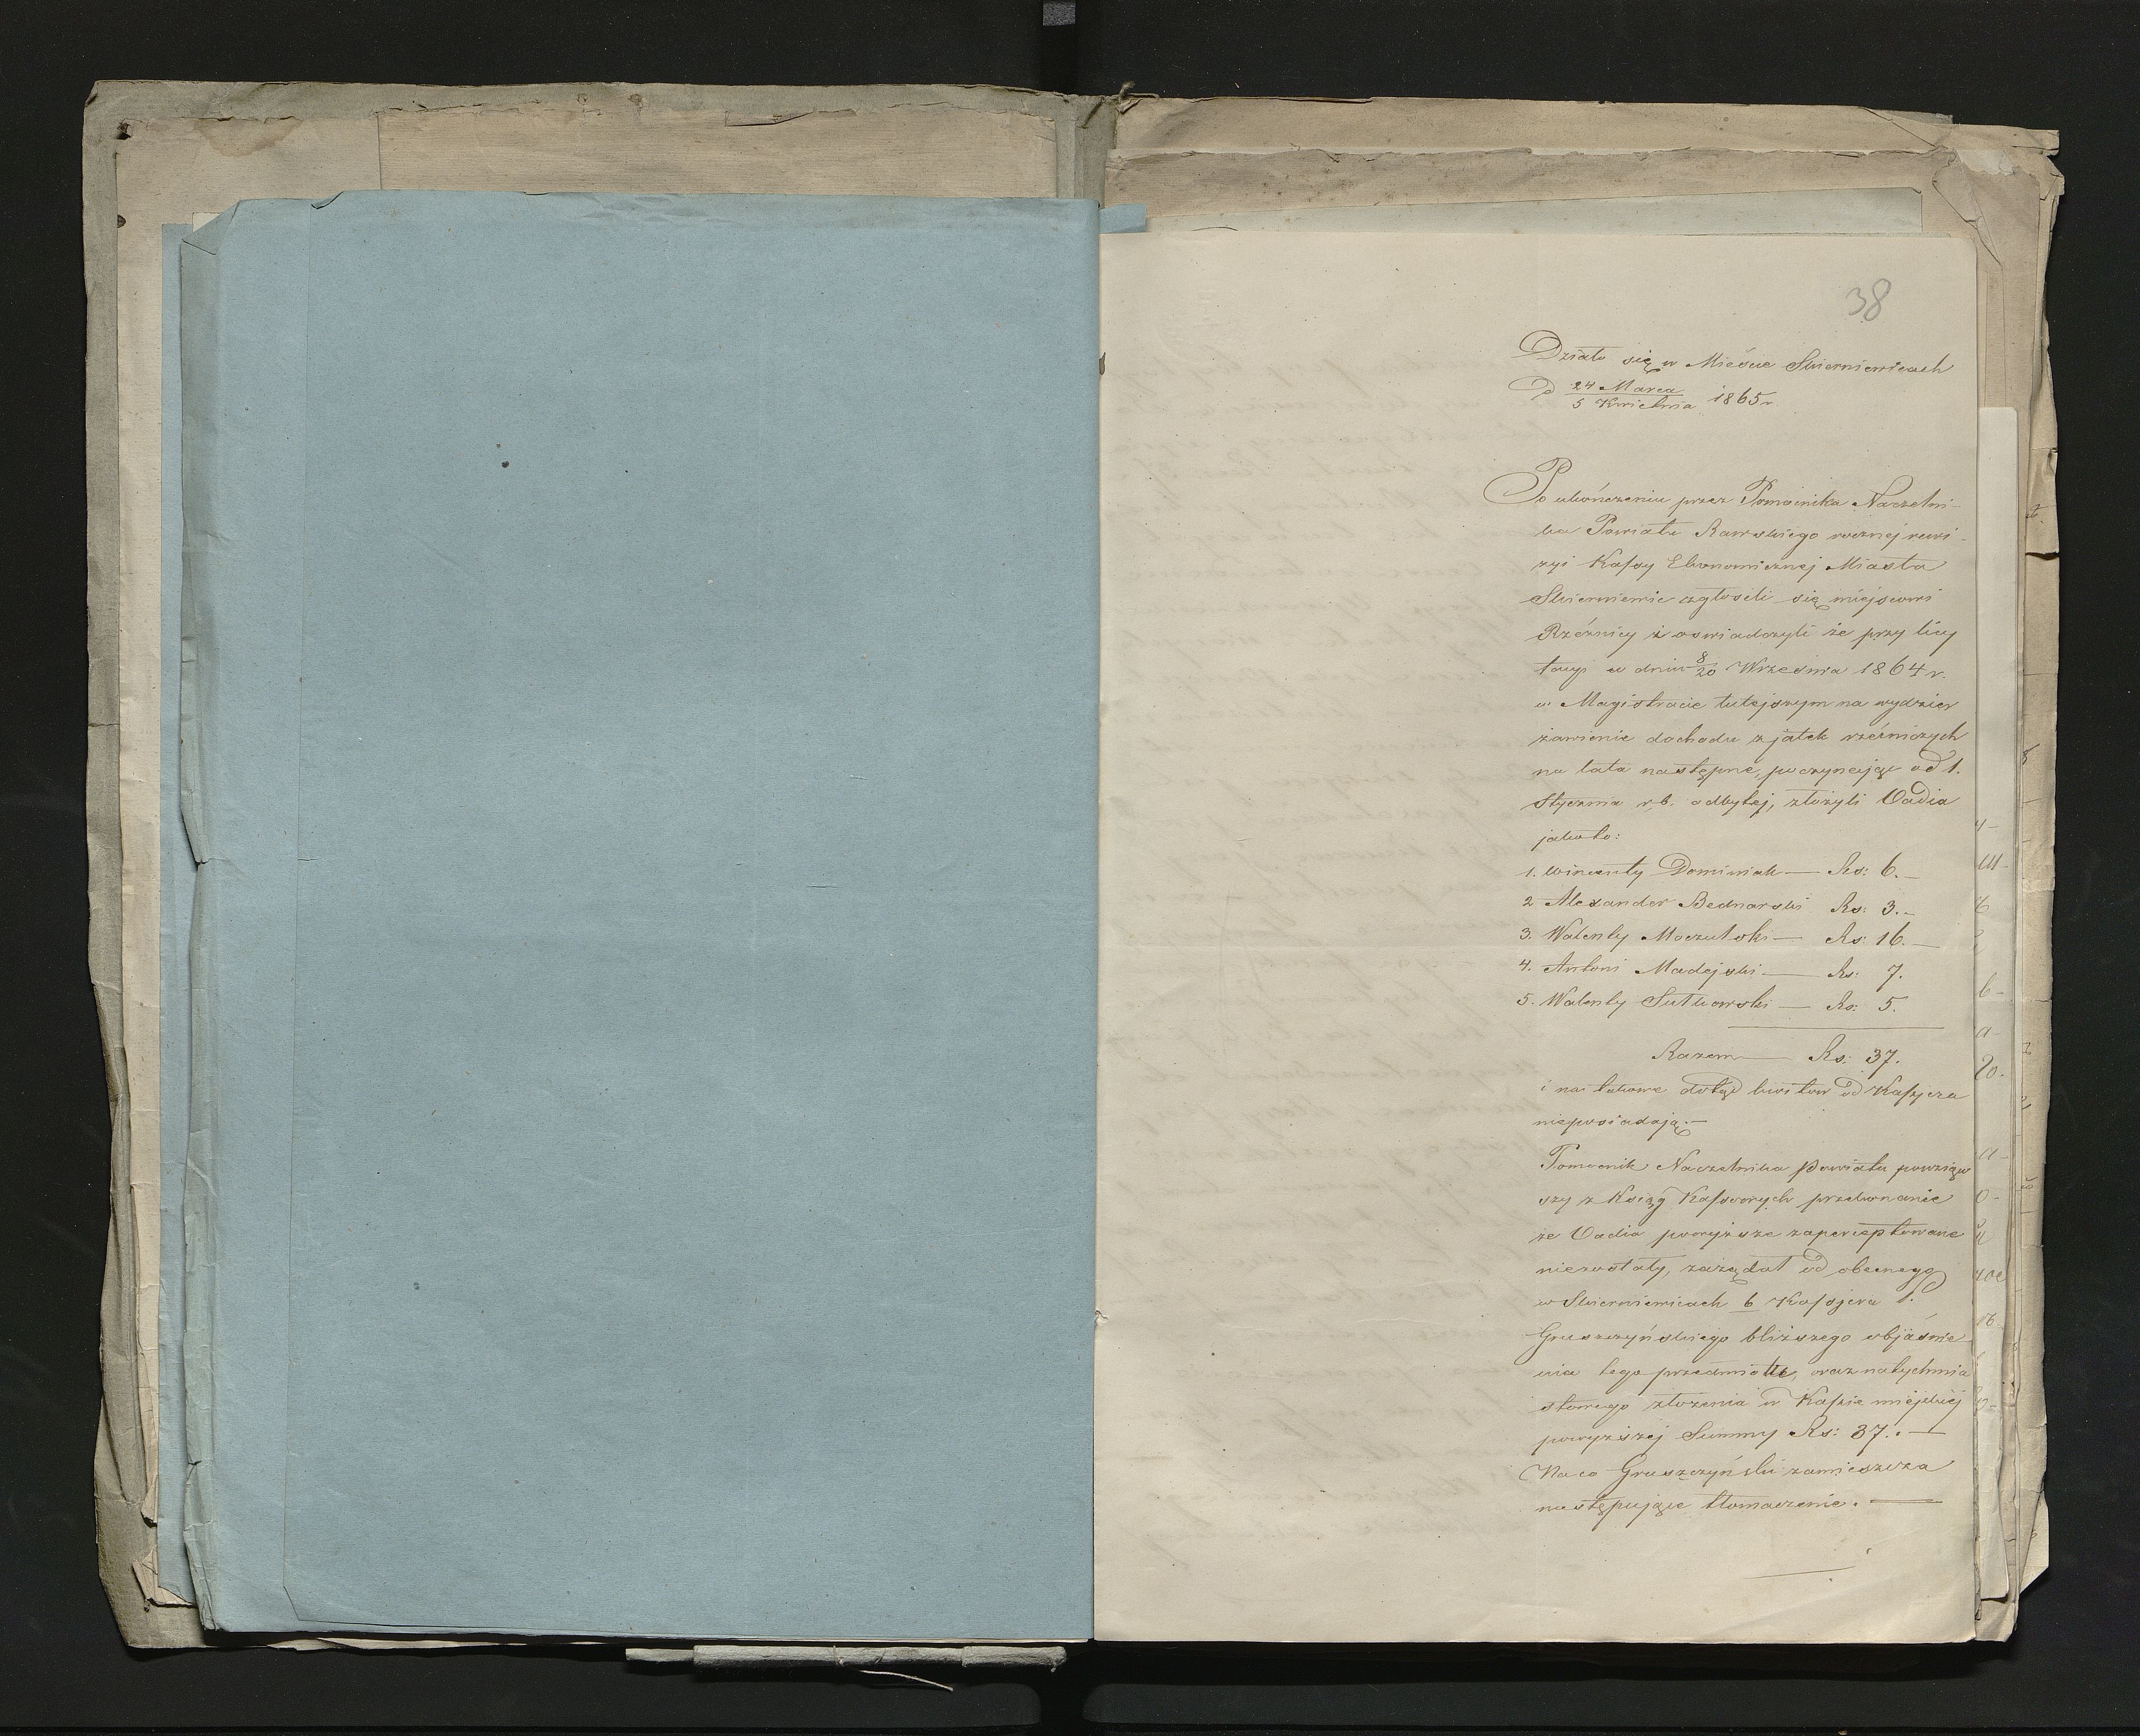 38
Działo się w Mieście Skierniewicach
D 24 Marca / 5 Kwietnia 1865 r
Po ukończeniu przez Pomocnika Naczelni-
ka Powiatu Rawskiego rocznej rewi-
zyi Kassy Ekonomicznej Miasta
Skierniewic zgłosili się miejscowi
Rzeźnicy i oswiadczyli że przy licy
tacyi w dniu 8/20 Września 1864 r.
w Magistracie tutejszym na wydzier
żawienie dochodu z jatek rzeźniczych
na lata następne, poczynając od 1.
Stycznia r. b. odbytej, złożyli Vadia
jako to:
1. Wincenty Dominiak — Rs: 6. —
2 Alexander Bednarski Rs: 3. —
3. Walenty Moczulski — Rs: 16. —
4. Antoni Madejski — Rs: 7.
5. Walenty Sutkowski — Rs: 5.
Razem — Rs: 37.
i na takowe dotąd kwitów od Kassjera
nieposiadają. —
Pomocnik Naczelnika Powiatu powziąw
szy z Ksiąg Kassowych przekonanie
że Vadia powyższe zapercieptowane
niezostały, zażądał od obecnego
w Skierniewicach b Kassjera P.
Gruszczyńskiego bliższego objaśnie
nia tego przedmiotu, oraz natychmia
stowego złożenia w Kassie miejskiej
powyższej Summy Rs: 37. —
Na co Gruszczyński zamieszcza
następujące tłomaczenie. —